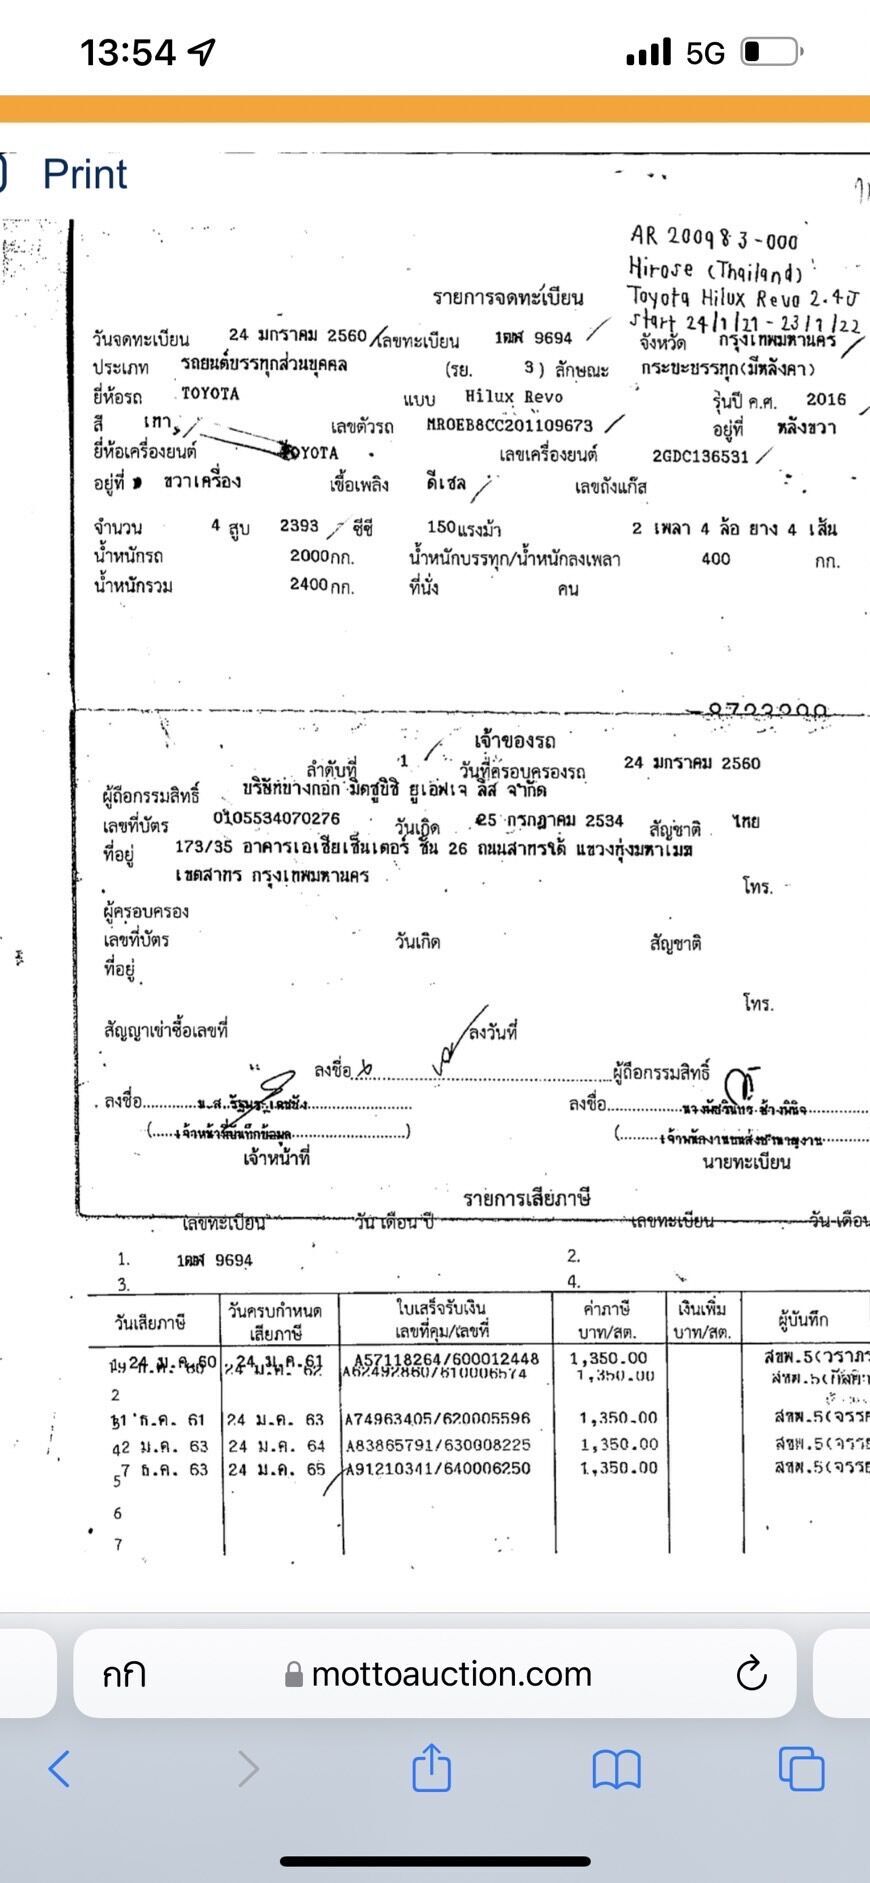 13:54
5G
Print
AR 200983-000
Hirose (Thailand)
รายการจดทะเบียน Toyota Hilux Revo 2.4J
start 24/1/21 - 23/1/22
วันจดทะเบียน 24 มกราคม 2560 เลขทะเบียน 1ฒศ 9694 จังหวัด กรุงเทพมหานคร
ประเภท รถยนต์บรรทุกส่วนบุคคล (รย. 3) ลักษณะ กระบะบรรทุก(มีหลังคา)
ยี่ห้อรถ TOYOTA แบบ Hilux Revo รุ่นปี ค.ศ. 2016
สี เทา เลขตัวรถ MR0EB8CC201109673 อยู่ที่ หลังขวา
ยี่ห้อเครื่องยนต์ TOYOTA เลขเครื่องยนต์ 2GDC136531
อยู่ที่ ขวาเครื่อง เชื้อเพลิง ดีเซล เลขถังแก๊ส
จำนวน 4 สูบ 2393 ซีซี 150แรงม้า 2 เพลา 4 ล้อ ยาง 4 เส้น
น้ำหนักรถ 2000กก. น้ำหนักบรรทุก/น้ำหนักลงเพลา 400 กก.
น้ำหนักรวม 2400กก. ที่นั่ง คน
เจ้าของรถ
ลำดับที่ 1 วันที่ครอบครองรถ 24 มกราคม 2560
ผู้ถือกรรมสิทธิ์ บริษัทบางกอก มิตซูบิชิ ยูเอฟเจ ลีส จำกัด
เลขที่บัตร 0105534070276 วันเกิด 25 กรกฎาคม 2534 สัญชาติ ไทย
ที่อยู่ 173/35 อาคารเอเชียเซ็นเตอร์ ชั้น 26 ถนนสาทรใต้ แขวงทุ่งมหาเมฆ
เขตสาทร กรุงเทพมหานคร
โทร.
ผู้ครอบครอง
เลขที่บัตร วันเกิด สัญชาติ
ที่อยู่
โทร.
สัญญาเช่าซื้อเลขที่ ลงวันที่
ลงชื่อ ผู้ถือกรรมสิทธิ์
ลงชื่อ น.ส. ลงชื่อ
(เจ้าหน้าที่บันทึกข้อมูล) (เจ้าพนักงานขนส่งชำนาญงาน
เจ้าหน้าที่ นายทะเบียน
รายการเสียภาษี
เลขทะเบียน วัน เดือน ปี เลขทะเบียน วัน-เดือน
1. 1ฒศ 9694 2.
3. 4.
วันเสียภาษี วันครบกำหนดเสียภาษี ใบเสร็จรับเงิน เลขที่คุม/เลขที่ ค่าภาษี บาท/สต. เงินเพิ่ม บาท/สต. ผู้บันทึก
24 ม.ค. 60 24 ม.ค. 61 A57118264/600012448 1,350.00 สขพ.5(วราภร
A62492860/610006574 1,350.00 สขพ.5(
2
31 ธ.ค. 61 24 ม.ค. 63 A74963405/620005596 1,350.00 สขพ.5(จรรย
42 ม.ค. 63 24 ม.ค. 64 A83865791/630008225 1,350.00 สขพ.5(จรรย
57 ธ.ค. 63 24 ม.ค. 65 A91210341/640006250 1,350.00 สขพ.5(จรรย
6
7
กก mottoauction.com